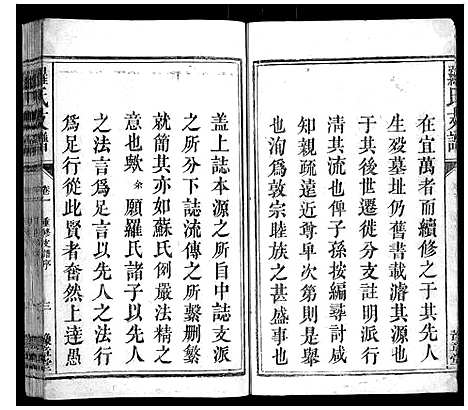 在宜萬者而續修之于其先人
生歿墓址仍舊書載濬其源也
于其後世遷徙分支註明派行
清其流也俾子孫按編尋討咸
知親疏遠近尊卑次第則是舉
也洵爲敦宗睦族之甚盛事也
蓋上誌本源之所自中誌支派
之所分下誌流傳之所繫刪繁
就簡其亦如蘇氏例嚴法精之
意也歟余願羅氏諸子以先人
之法言爲足言以先人之法行
爲足行從此賢者奮然上達愚
羅氏支譜
卷一
重修支譜序
三
豫章堂